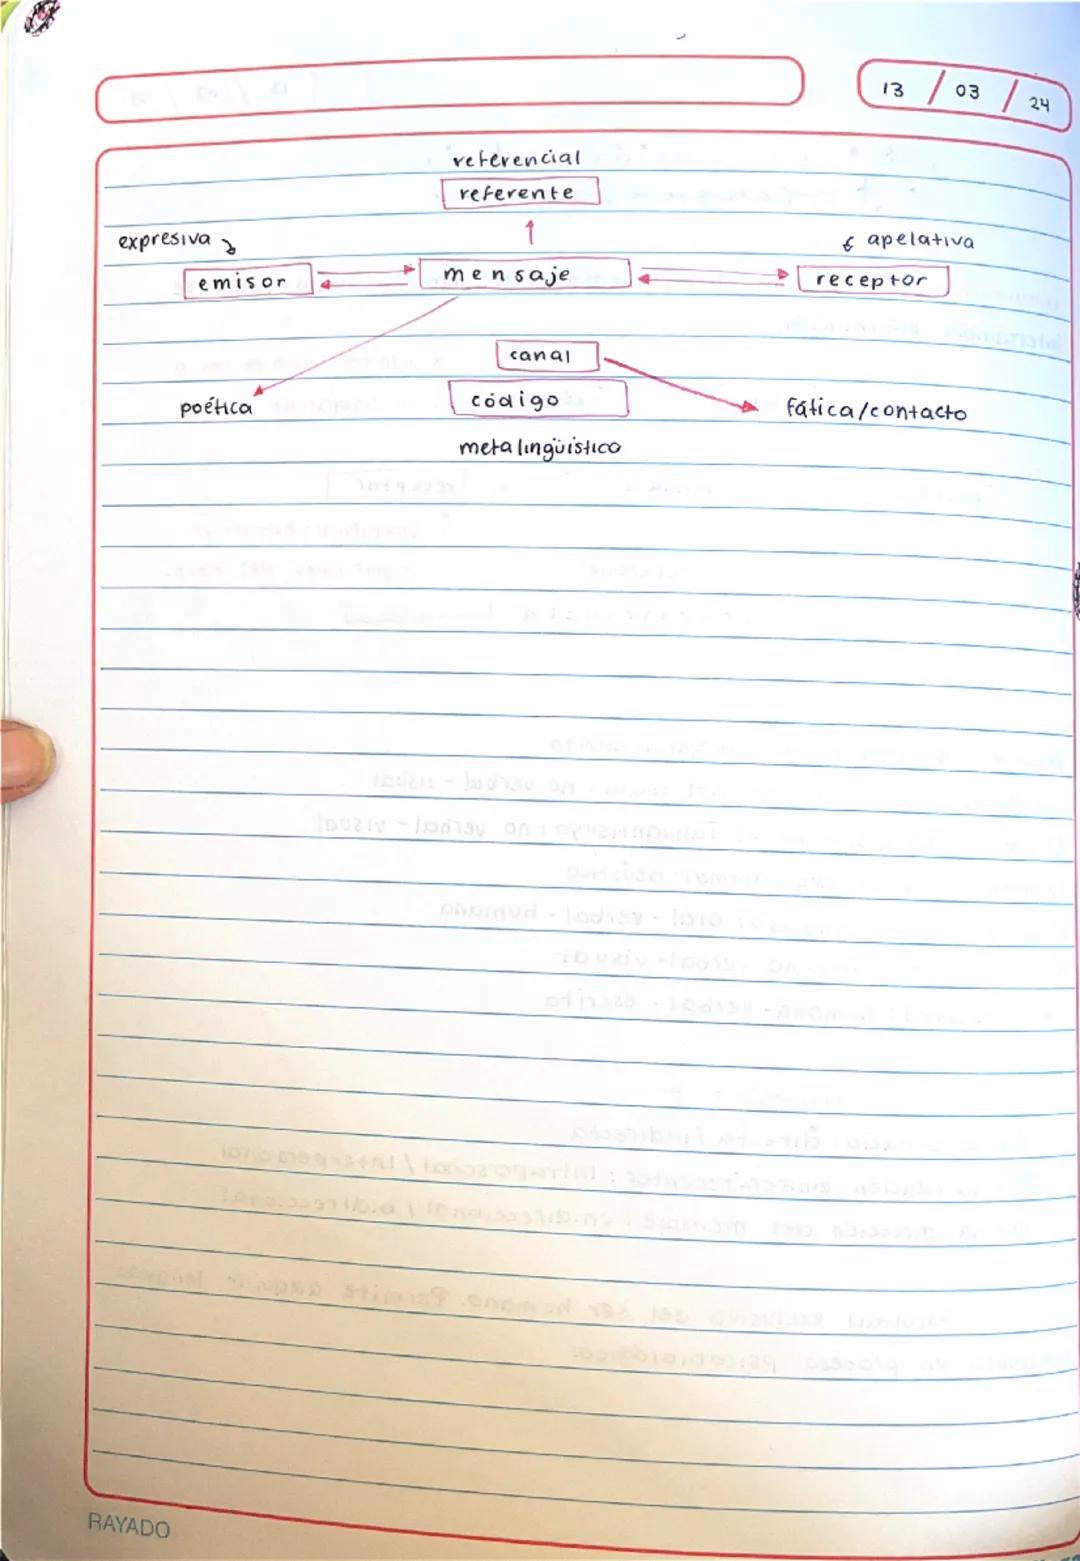 13 / 03 / 24
referencial
referente
expresiva
apelativa
emisor
mensaje
receptor
canal
código
poética
fática/contacto
metalingüístico
RAYADO